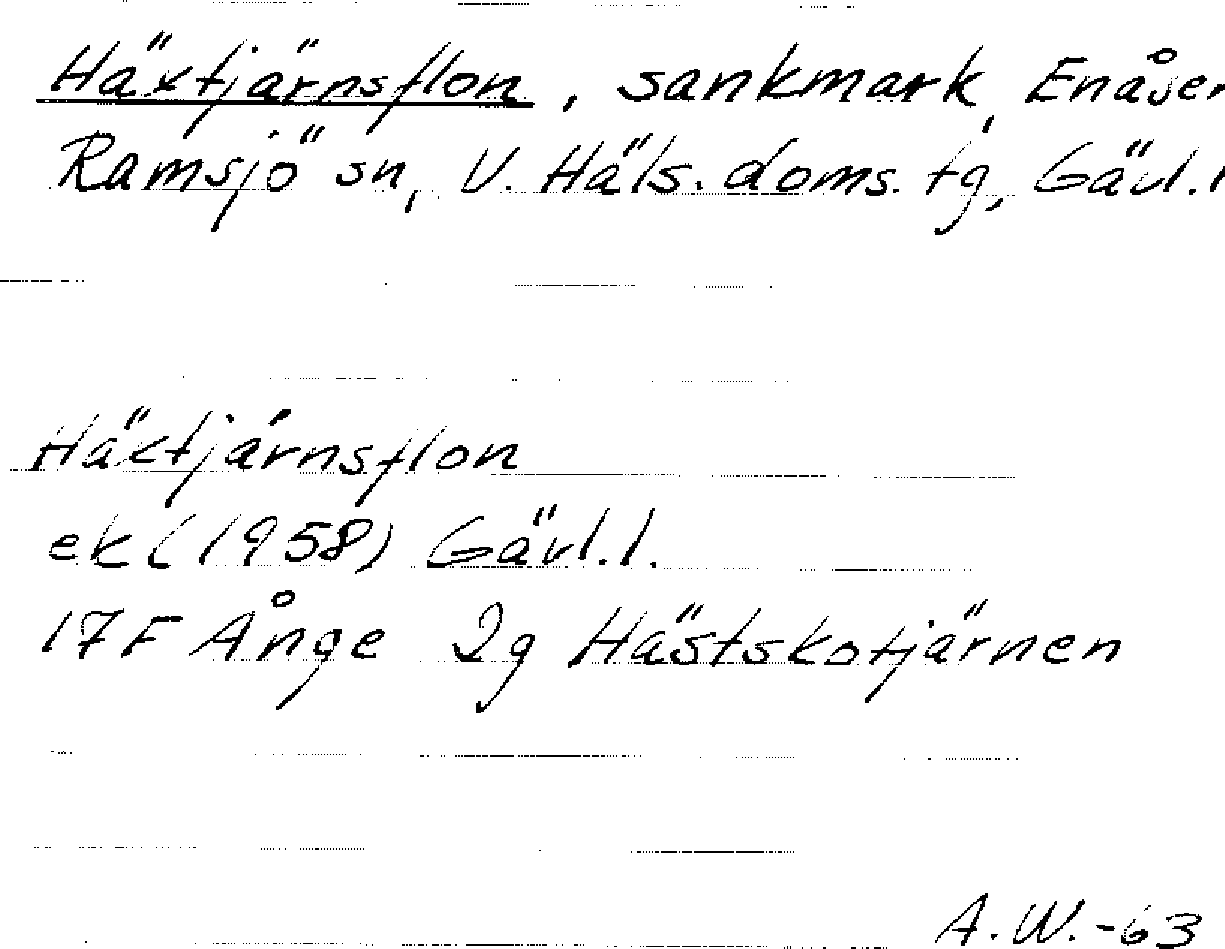 Häxtjärnsflon, sankmark, Enåser
Ramsjö sn, V. Häls. doms. tg, Gävl. l
Häxtjärnsflon
ek (1958) Gävl. l.
17F Ånge 2g Hästskotjärnen
A.W.-63